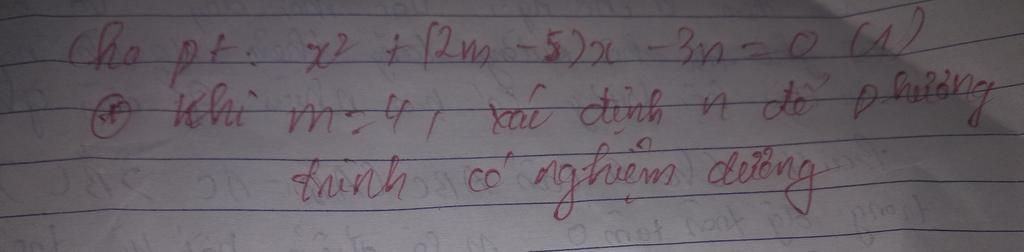 Cho pt: x² + (2m - 5)x - 3n = 0 (1)
⊕ Khi m = 4, xác định n để phương
trình có nghiệm dương